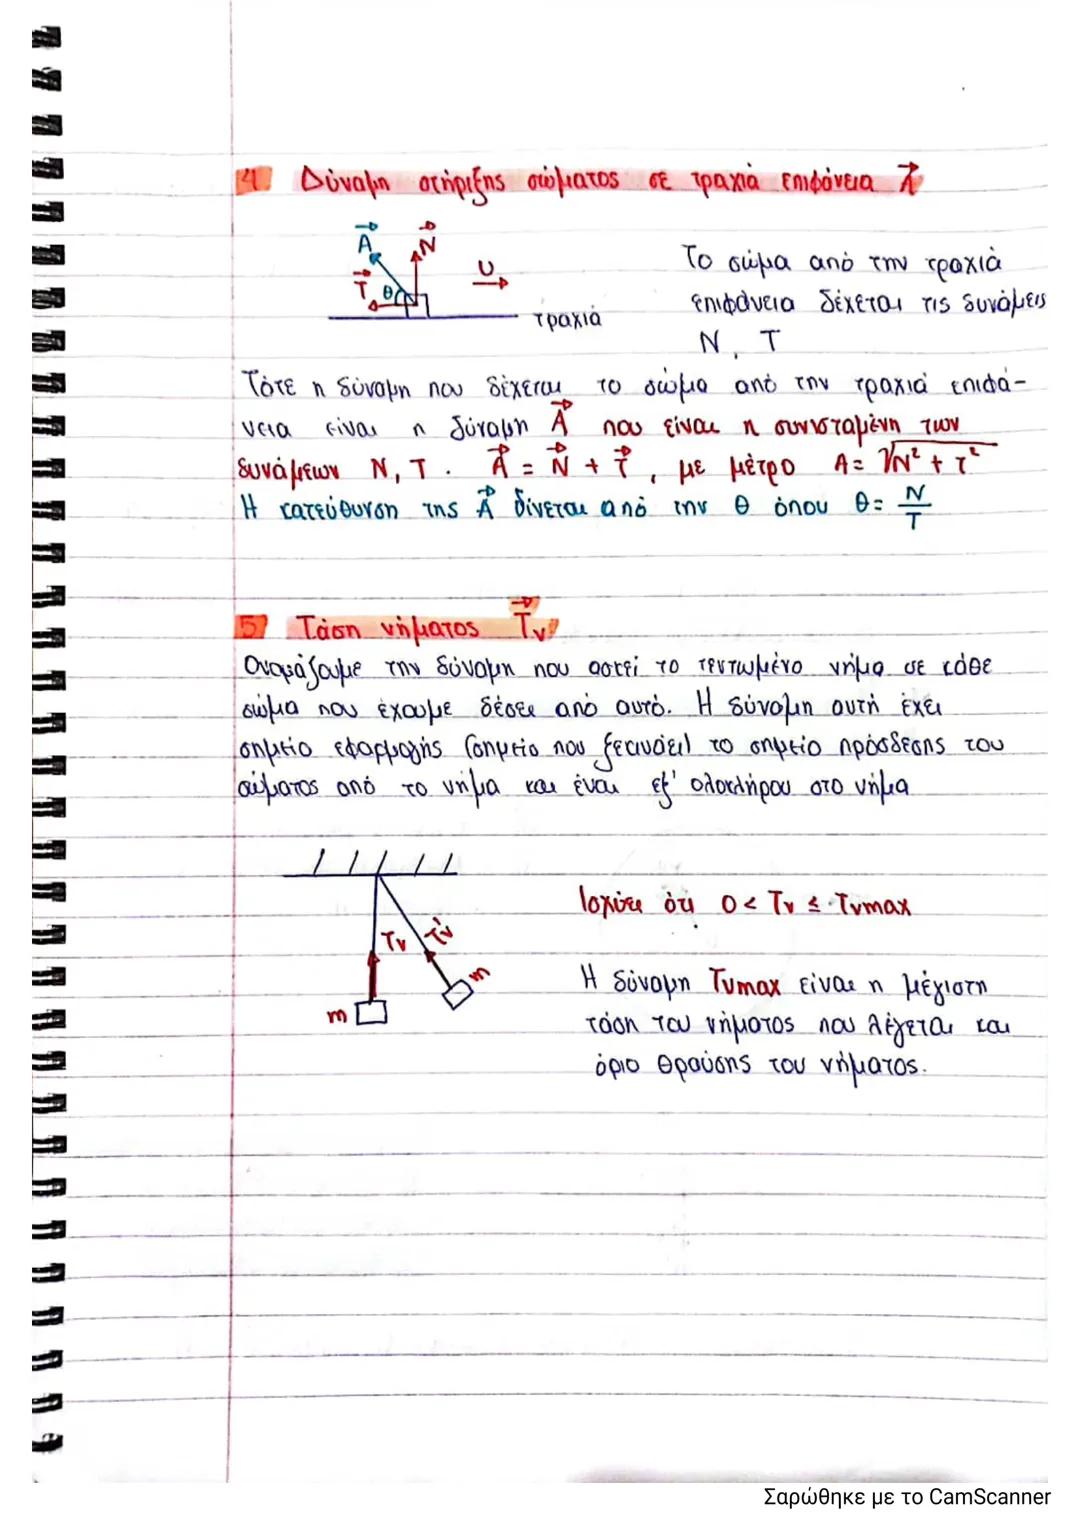 4 Δύναμη στήριξης σώματος σε τραχιά επιφάνεια A
A N
T θ υ
τραχιά
Το σώμα από την τραχιά
επιφάνεια δέχεται τις δυνάμεις
N, T
Τότε η δύναμη που δέχεται το σώμα από την τραχιά επιφά-
νεια είναι η δύναμη A που είναι η συνισταμένη των
δυνάμεων N, T. A = N + T, με μέτρο A = √N² + T²
Η κατεύθυνση της A δίνεται από την θ όπου θ = N/T
5 Τάση νήματος Tν
Ονομάζουμε την δύναμη που ασκεί το τεντωμένο νήμα σε κάθε
σώμα που έχουμε δέσει από αυτό. Η δύναμη αυτή έχει
σημείο εφαρμογής (σημείο που ξεκινάει) το σημείο πρόσδεσης του
σώματος από το νήμα και έναι εξ' ολοκλήρου στο νήμα
Tν Tν
m m
Ισχύει ότι 0 < Tν ≤ Tνmax
Η δύναμη Tνmax είναι η μέγιστη
τάση του νήματος που λέγεται και
όριο θραύσης του νήματος.
Σαρώθηκε με το CamScanner